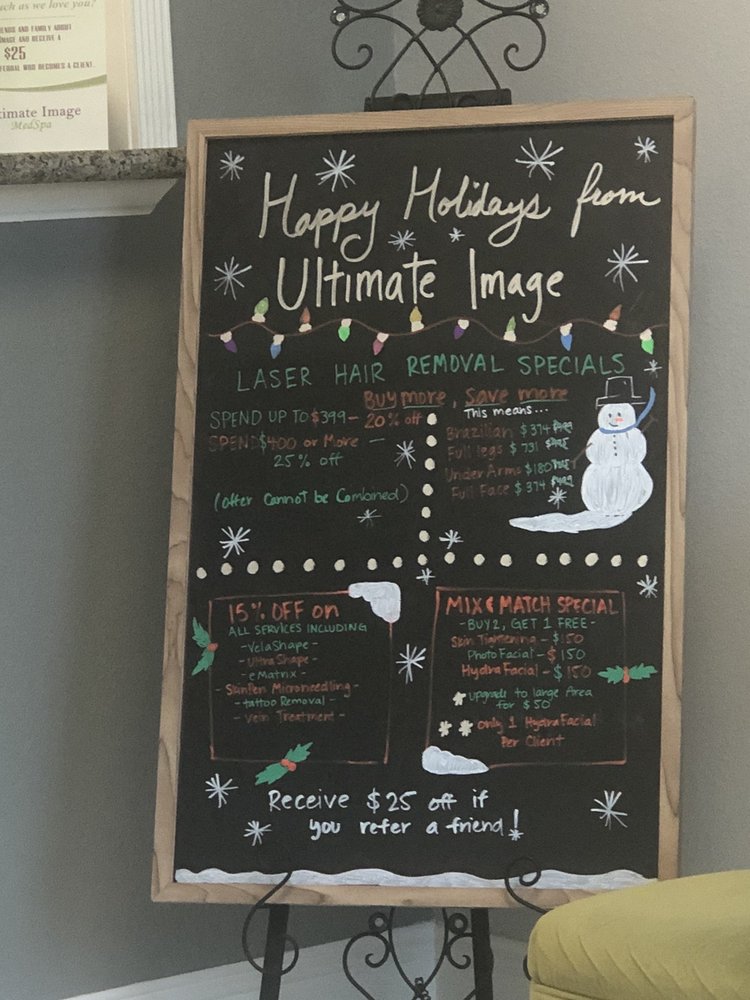 uch as we love you?
ENDS AND FAMILY ABOUT
IMAGE AND RECEIVE A
$25
FERRAL WHO BECOMES A CLIENT.
timate Image
MedSpa
Happy Holidays from
Ultimate Image
LASER HAIR REMOVAL SPECIALS
Buy more, save more
SPEND UP TO $399 - 20% off
SPEND $400 or More -
25% off
(offer Cannot be Combined)
This means...
Brazilian $374
Full legs $731
Under Arms $180
Full Face $374
15% OFF on
ALL SERVICES INCLUDING
- VelaShape -
- UltraShape -
- eMatrix -
- SkinPen Microneedling -
- tattoo Removal -
- Vein Treatment -
MIX & MATCH SPECIAL
- BUY 2, GET 1 FREE -
Skin Tightening - $150
Photo Facial - $150
Hydra Facial - $150
* upgrade to large Area
for $50
** only 1 HydraFacial
Per Client
Receive $25 off if
you refer a friend!